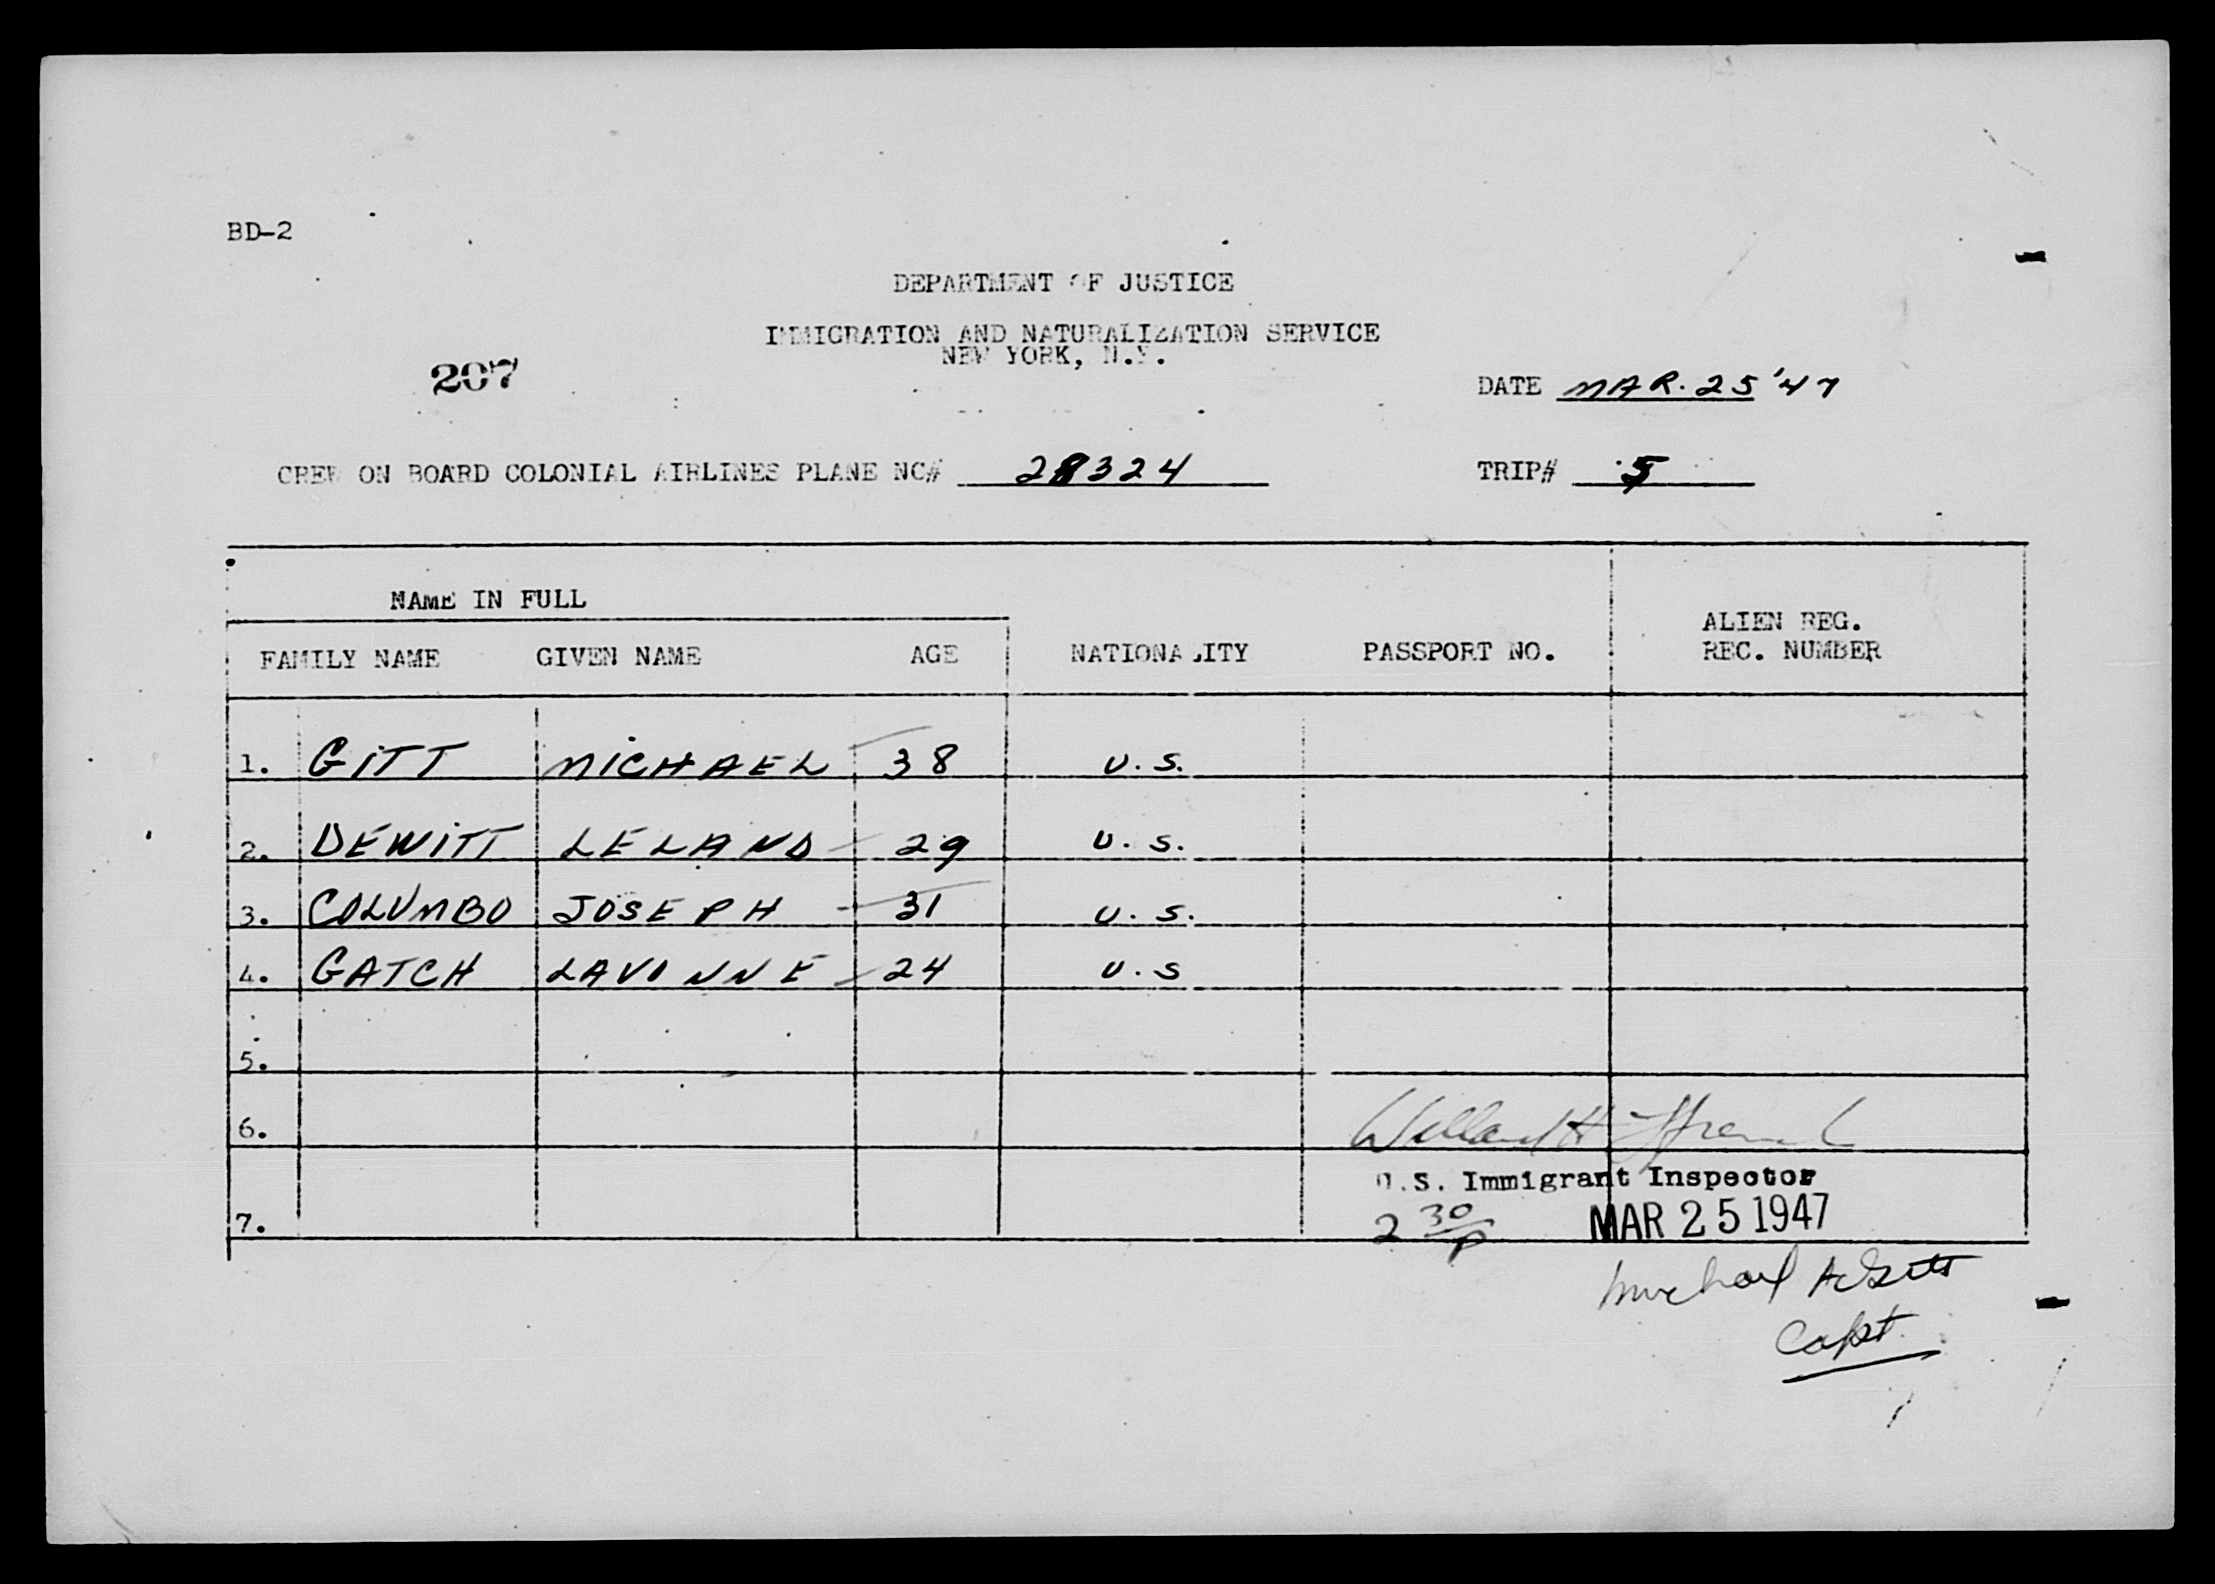 BD-2
DEPARTMENT OF JUSTICE
IMMIGRATION AND NATURALIZATION SERVICE
NEW YORK, N.Y.
207
DATE MAR. 25 '47
CREW ON BOARD COLONIAL AIRLINES PLANE NC# 28324 TRIP# 5
NAME IN FULL
FAMILY NAME GIVEN NAME AGE NATIONALITY PASSPORT NO. ALIEN REG. REC. NUMBER
1. GITT MICHAEL 38 U.S.
2. DEWITT LELAND 29 U.S.
3. COLUMBO JOSEPH 31 U.S.
4. GATCH LAVONNE 24 U.S
5.
6.
U.S. Immigrant Inspector
7. 2 30/P MAR 25 1947
Michael A Gitt
Capt.